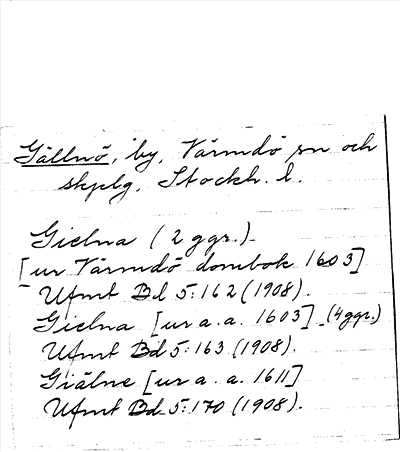 Gällnö, by, Värmdö sn och
skplg, Stockh. l.
Gielna (2 ggr.).
[ur Värmdö dombok 1603]
Ufmt Bd 5:162 (1908).
Gielna [ur a.a. 1603] (4ggr.)
Ufmt Bd 5:163 (1908).
Giälne [ur a.a. 1611]
Ufmt Bd 5:170 (1908).